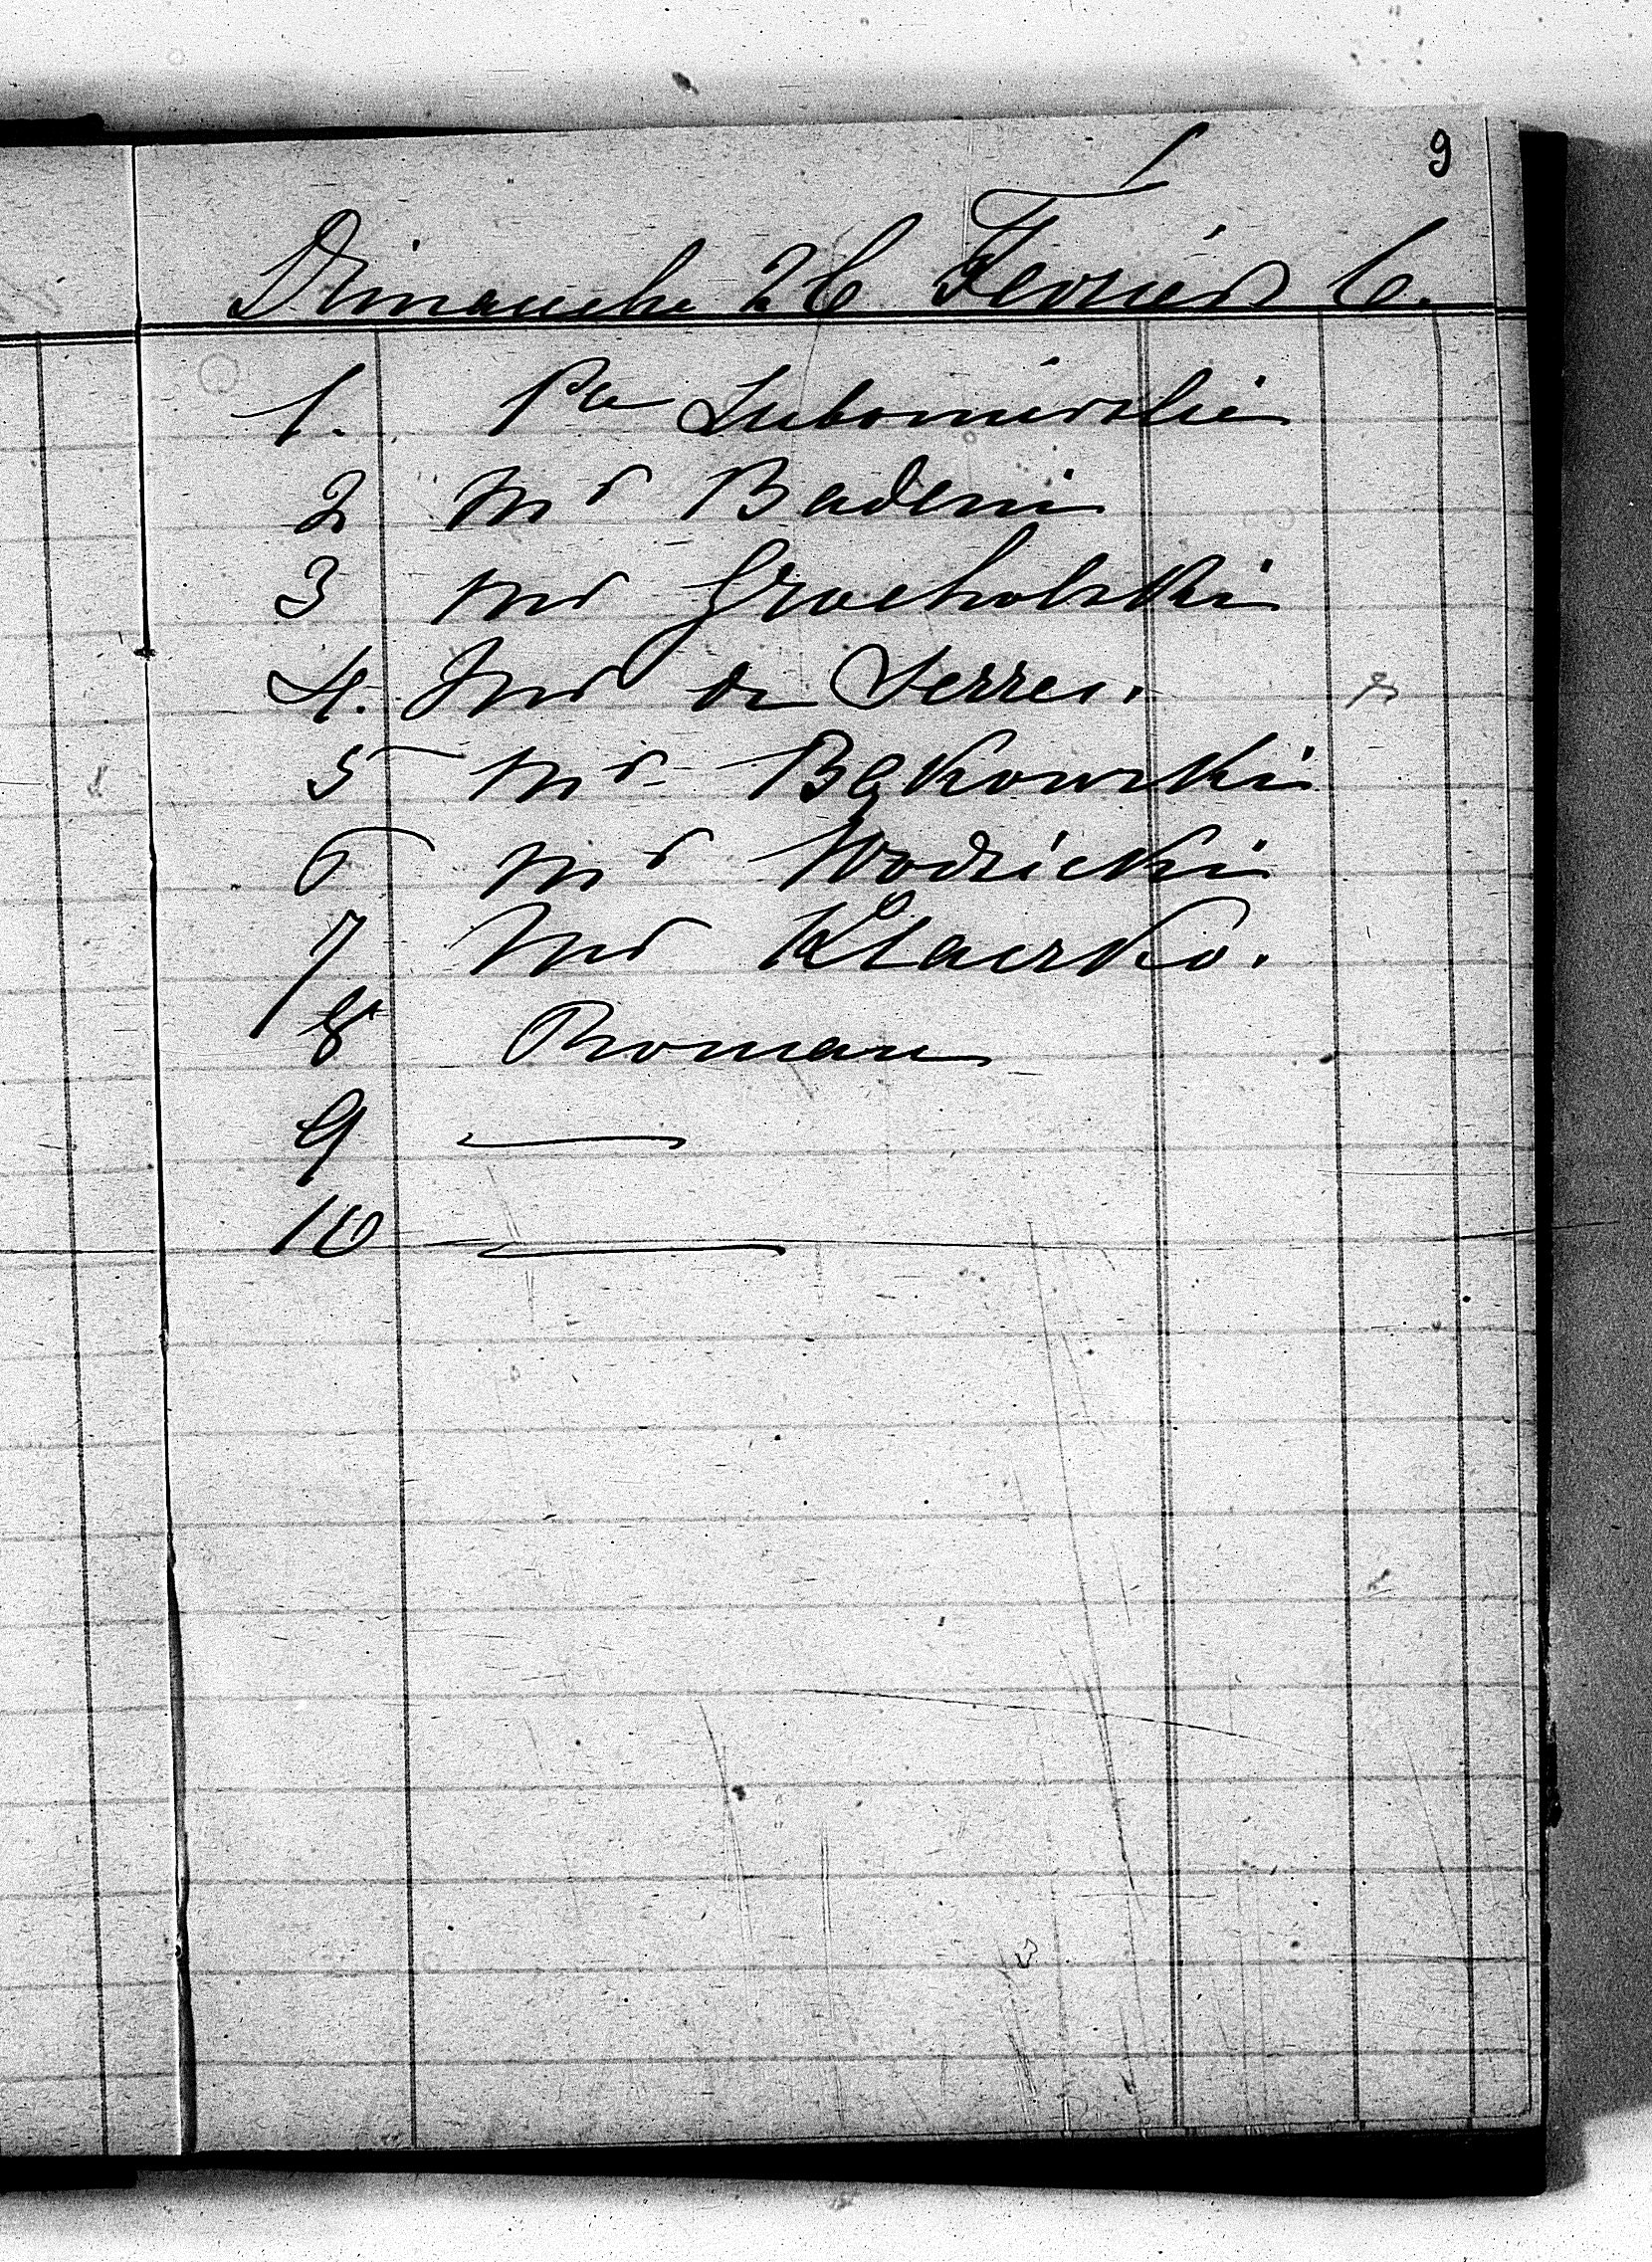 9
Dimanche 26 Fevrier 6.
1. Pce Lubomirski
2 Mr Badeni
3 Mr Grocholski
4. Mr de Serres.
5 Mr Bąkowski
6 Mr Wodzicki
7 Mr Klaczko.
8 Roman
9 —
10 —